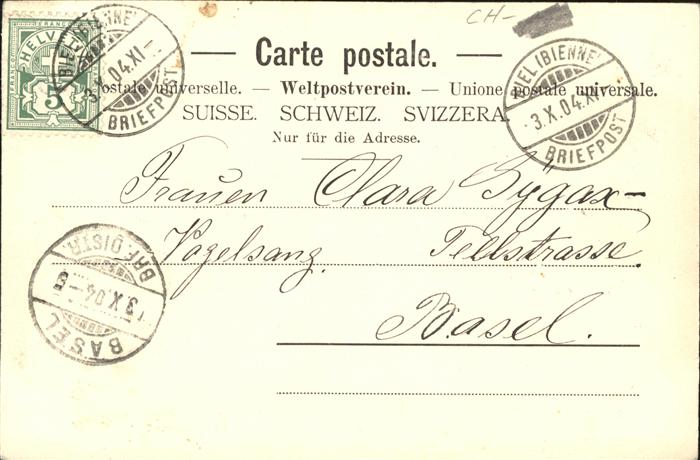 CH-
— Carte postale. —
postale universelle. — Weltpostverein. — Unione postale universale.
SUISSE. SCHWEIZ. SVIZZERA.
Nur für die Adresse.
FRANCO
HELVETIA
5
BIEL (BIENNE)
3.X.04.XI—
BRIEFPOST
BIEL (BIENNE)
3.X.04.XI
BRIEFPOST
Frauen Clara Gÿgax-
Vogelsang. Tellstrasse.
Basel.
BASEL
3.X.04
BRF. DISTR.